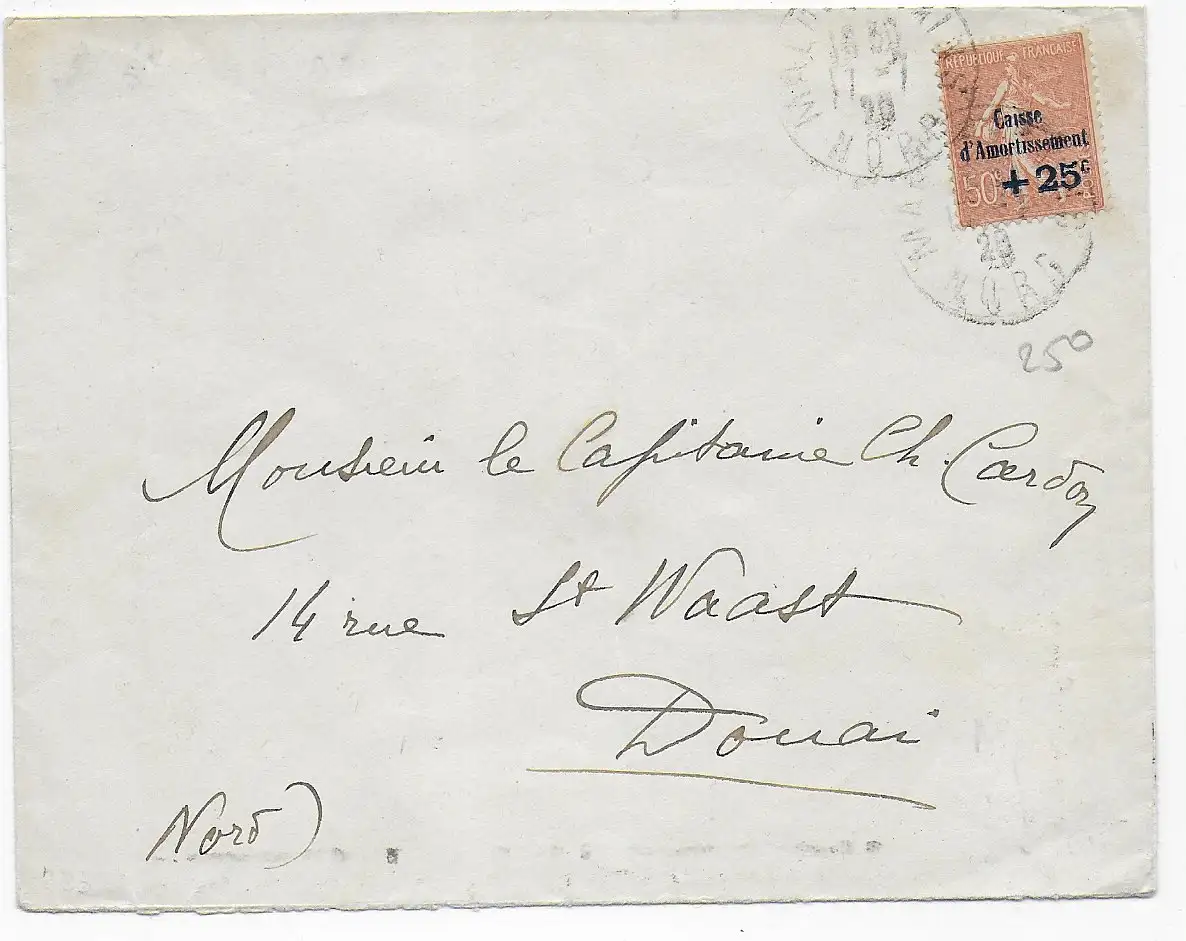 REPUBLIQUE FRANÇAISE
Caisse
d'Amortissement
50c + 25c
NORD
28
NORD
250
Monsieur le Capitaine Ch. Cardon
14 rue St Waast
Douai
Nord)